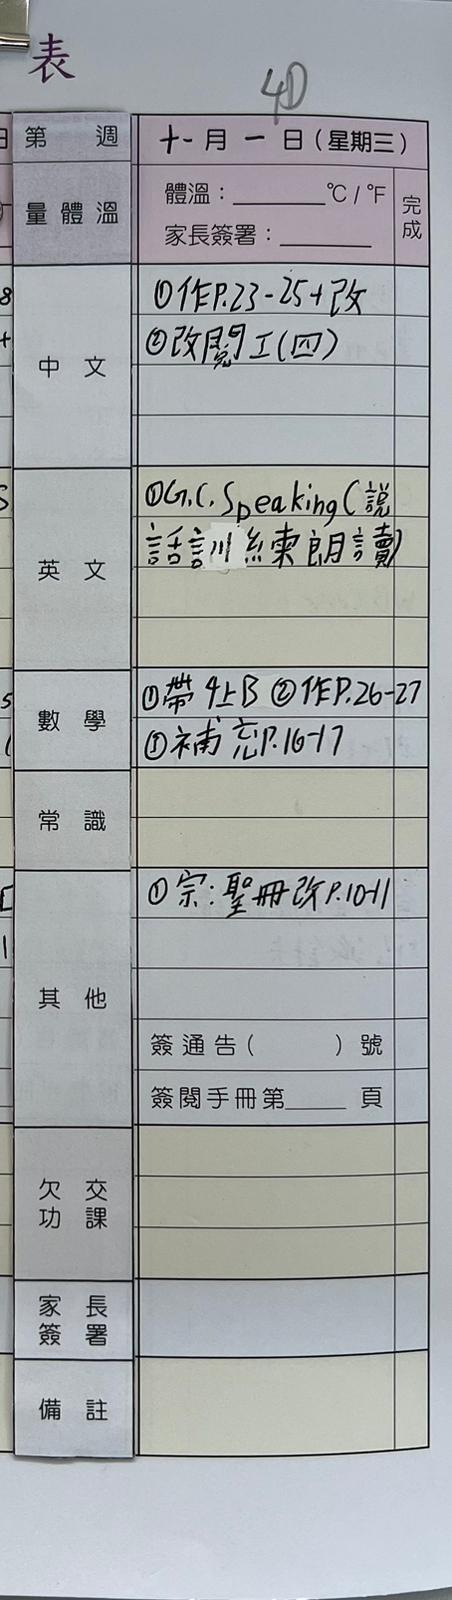 表
4D
第 週
十一月 一 日(星期三)
量體溫
體溫:________℃/℉
家長簽署:________
完成
中文
①作P.23-25+改
②改閱工(四)
英文
①G.C. Speaking(説
話訓練朗讀)
數學
①帶4上B ②作P.26-27
①補充P.16-17
常識
其他
①宗:聖冊改P.10-11
簽通告( )號
簽閱手冊第_____頁
欠交
功課
家長
簽署
備註